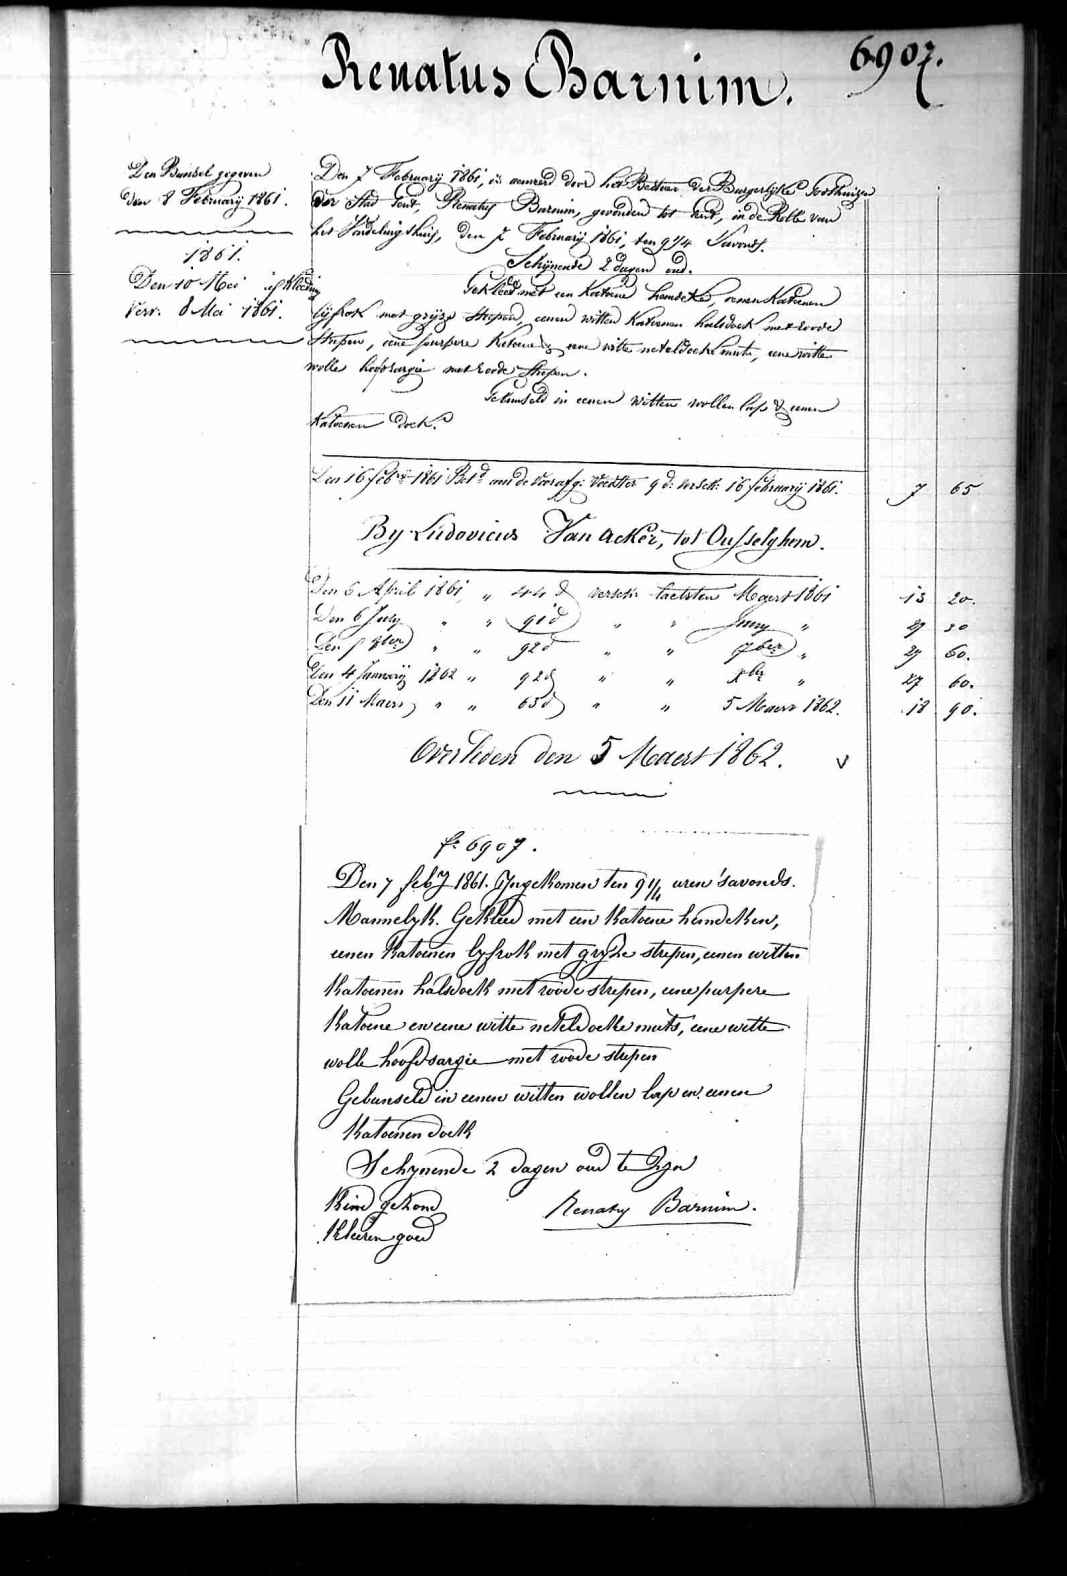 Renatus Barnim.
6907.
Den Bunsel gegeven
den 8 February 1861.
1861.
Den 10 Mei
Verv. 8 Mei 1861.
Den 7 February 1861, is aenveerd door het Bestuer der Burgerlyke Godshuizen
der Stad Gent, Renatus Barnim, gevonden tot Gent, in de Rolle van
het Vondelingshuis, den 7 February 1861, ten 9 1/4 'savonds.
Schynende 2 dagen oud.
Gekleed met een Katoene hemdeke, eenen Katoenen
lyfrok met gryze strepen, eenen witten Katoenen halsdoek met roode
strepen, eene purpere Katoene & eene witte neteldoeksche muts, eene witte
wolle hoofdsargie met roode strepen.
Gebunseld in eenen witten wollen lap & eenen
Katoenen doek.
Den 16 feb 1861 Bet.d aen de voorafg: voedster 9 d: versch: 16 february 1861. 7 65
By Ludovicus Van acker, tot Ousselghem.
Den 6 April 1861 " 44 d versch: laetsten Maert 1861 13 20.
Den 6 July " " 91 d " " Juny " 27 30
Den 7ber " " 92 d " " 7ber " 27 60.
Den 4 January 1862 " 92 d " " xbr " 27 60.
Den 11 Maert " " 63 d " " 5 Maert 1862. 18 90.
Overleden den 5 Maert 1862. v
f. 6907.
Den 7 feby 1861. Ingekomen ten 9 1/4 uren 'savonds.
Mannelyk. Gekleed met een Katoene hemdeken,
eenen Katoenen lyfrok met gryze strepen, eenen witten
Katoenen halsdoek met roode strepen, eene purpere
Katoene en eene witte neteldoeke muts, eene witte
wolle hoofdsargie met roode strepen
Gebunseld in eenen witten wollen lap en eenen
Katoenen doek
Schynende 2 dagen oud te zyn
Kind gezond
Renatus Barnim.
Kleeren goed